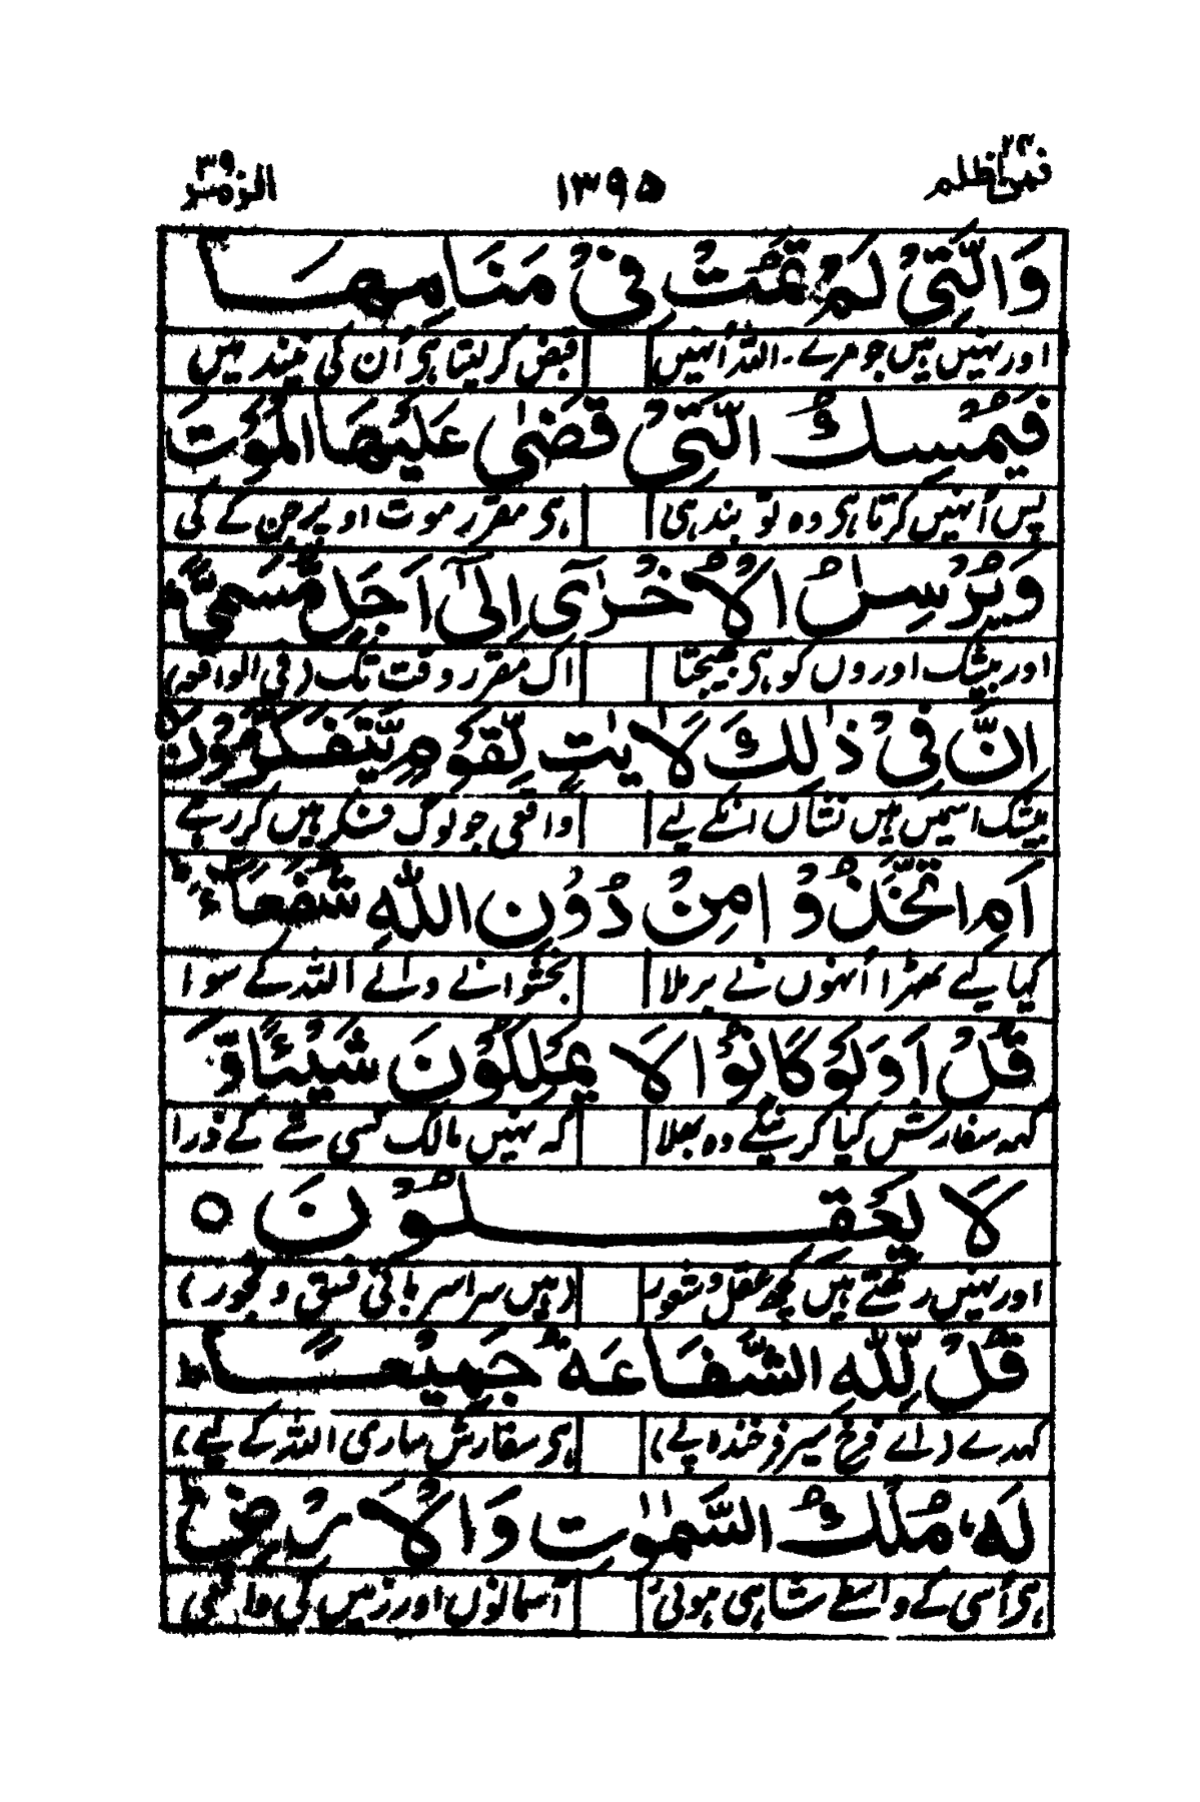 فمن اظلم ۲۴ ۱۳۹۵ الزمر ۳۹
وَالَّتِیْ لَمْ تَمُتْ فِیْ مَنَامِهَا
اور نہیں ہیں جو مرے۔ اللہ اُنہیں قبض کر لیتا ہی اُن کی نیند میں
فَیُمْسِكُ الَّتِیْ قَضٰی عَلَیْهَا الْمَوْتَ
پس اُنہیں کرتا ہی وہ تو بند ہی ہی مقرر موت اوپر جن کے کی
وَیُرْسِلُ الْاُخْرٰۤی اِلٰۤی اَجَلٍ مُّسَمًّی ؕ
اور بیشک اوروں کو ہی بھیجتا اک مقرر وقت تک (فی الواقعہ)
اِنَّ فِیْ ذٰلِكَ لَاٰیٰتٍ لِّقَوْمٍ یَّتَفَكَّرُوْنَ
بیشک اسمیں ہیں نشاں انکے لیے واقعی جو لوگ فکر ہیں کر رہے
اَمِ اتَّخَذُوْا مِنْ دُوْنِ اللّٰهِ شُفَعَآءَ ؕ
کیا لیے ٹھرا اُنہوں نے برملا بخشوانے والے اللہ کے سوا
قُلْ اَوَلَوْ كَانُوْا لَا یَمْلِكُوْنَ شَیْـًٔا وَّ
کہہ سفارش کیا کرینگے وہ بھلا کہ نہیں مالک کسی شے کے ذرا
لَا یَعْقِلُوْنَ ۝
اور نہیں رکھتے ہیں کچھ عقل و شعور (ہیں سراسر بانی فسق و فجور)
قُلْ لِّلّٰهِ الشَّفَاعَةُ جَمِیْعًا ؕ
کہدے (اے فرخ سیر فرخندہ پے) ہی سفارش ساری اللہ کے لیے)
لَهٗ مُلْكُ السَّمٰوٰتِ وَالْاَرْضِ ؕ
ہی اُسی کے واسطے شاہی ہوئی آسمانوں اور زمیں کی واقعی